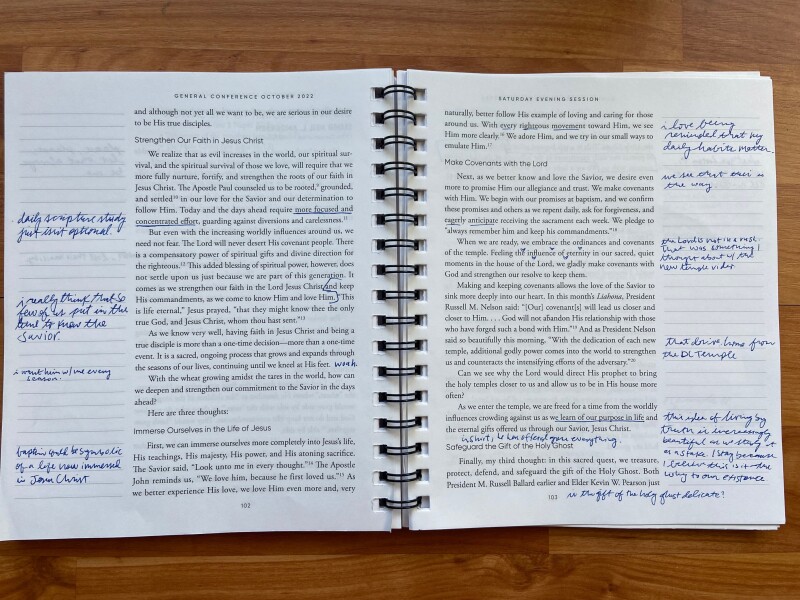 GENERAL CONFERENCE OCTOBER 2022
and although not yet all we want to be, we are serious in our desire
to be His true disciples.
Strengthen Our Faith in Jesus Christ
We realize that as evil increases in the world, our spiritual sur-
vival, and the spiritual survival of those we love, will require that we
more fully nurture, fortify, and strengthen the roots of our faith in
Jesus Christ. The Apostle Paul counseled us to be rooted,⁹ grounded,
and settled¹⁰ in our love for the Savior and our determination to
follow Him. Today and the days ahead require more focused and
concentrated effort, guarding against diversions and carelessness.¹¹
But even with the increasing worldly influences around us, we
need not fear. The Lord will never desert His covenant people. There
is a compensatory power of spiritual gifts and divine direction for
the righteous.¹² This added blessing of spiritual power, however, does
not settle upon us just because we are part of this generation. It
comes as we strengthen our faith in the Lord Jesus Christ and keep
His commandments, as we come to know Him and love Him. "This
is life eternal," Jesus prayed, "that they might know thee the only
true God, and Jesus Christ, whom thou hast sent."¹³
As we know very well, having faith in Jesus Christ and being a
true disciple is more than a one-time decision—more than a one-time
event. It is a sacred, ongoing process that grows and expands through
the seasons of our lives, continuing until we kneel at His feet. woah.
With the wheat growing amidst the tares in the world, how can
we deepen and strengthen our commitment to the Savior in the days
ahead?
Here are three thoughts:
Immerse Ourselves in the Life of Jesus
First, we can immerse ourselves more completely into Jesus's life,
His teachings, His majesty, His power, and His atoning sacrifice.
The Savior said, "Look unto me in every thought."¹⁴ The Apostle
John reminds us, "We love him, because he first loved us."¹⁵ As
we better experience His love, we love Him even more and, very
102
daily scripture study
just isn't optional.
i really think that so
few of us put in the
time to know the
Savior.
i want him w/ me every
season.
baptism could be symbolic
of a life now immersed
in Jesus Christ
SATURDAY EVENING SESSION
naturally, better follow His example of loving and caring for those
around us. With every righteous movement toward Him, we see
Him more clearly.¹⁶ We adore Him, and we try in our small ways to
emulate Him.¹⁷
Make Covenants with the Lord
Next, as we better know and love the Savior, we desire even
more to promise Him our allegiance and trust. We make covenants
with Him. We begin with our promises at baptism, and we confirm
these promises and others as we repent daily, ask for forgiveness, and
eagerly anticipate receiving the sacrament each week. We pledge to
"always remember him and keep his commandments."¹⁸
When we are ready, we embrace the ordinances and covenants
of the temple. Feeling the influence of eternity in our sacred, quiet
moments in the house of the Lord, we gladly make covenants with
God and strengthen our resolve to keep them.
Making and keeping covenants allows the love of the Savior to
sink more deeply into our heart. In this month's Liahona, President
Russell M. Nelson said: "[Our] covenant[s] will lead us closer and
closer to Him. . . . God will not abandon His relationship with those
who have forged such a bond with Him."¹⁹ And as President Nelson
said so beautifully this morning, "With the dedication of each new
temple, additional godly power comes into the world to strengthen
us and counteracts the intensifying efforts of the adversary."²⁰
Can we see why the Lord would direct His prophet to bring
the holy temples closer to us and allow us to be in His house more
often?
As we enter the temple, we are freed for a time from the worldly
influences crowding against us as we learn of our purpose in life and
the eternal gifts offered us through our Savior, Jesus Christ.
in short, he has offered you everything.
Safeguard the Gift of the Holy Ghost
Finally, my third thought: in this sacred quest, we treasure,
protect, defend, and safeguard the gift of the Holy Ghost. Both
President M. Russell Ballard earlier and Elder Kevin W. Pearson just
103
is the gift of the holy ghost delicate?
i love being
reminded that my
daily habits matter.
we see that this is
the way
the Lord is not in a rush.
That was something I
thought about w/ the
new temple video
that drive home from
the DC Temple
this idea of living by
truth is increasingly
beautiful as we study it
as a stake. I stay because
I believe this is the
why to our existence